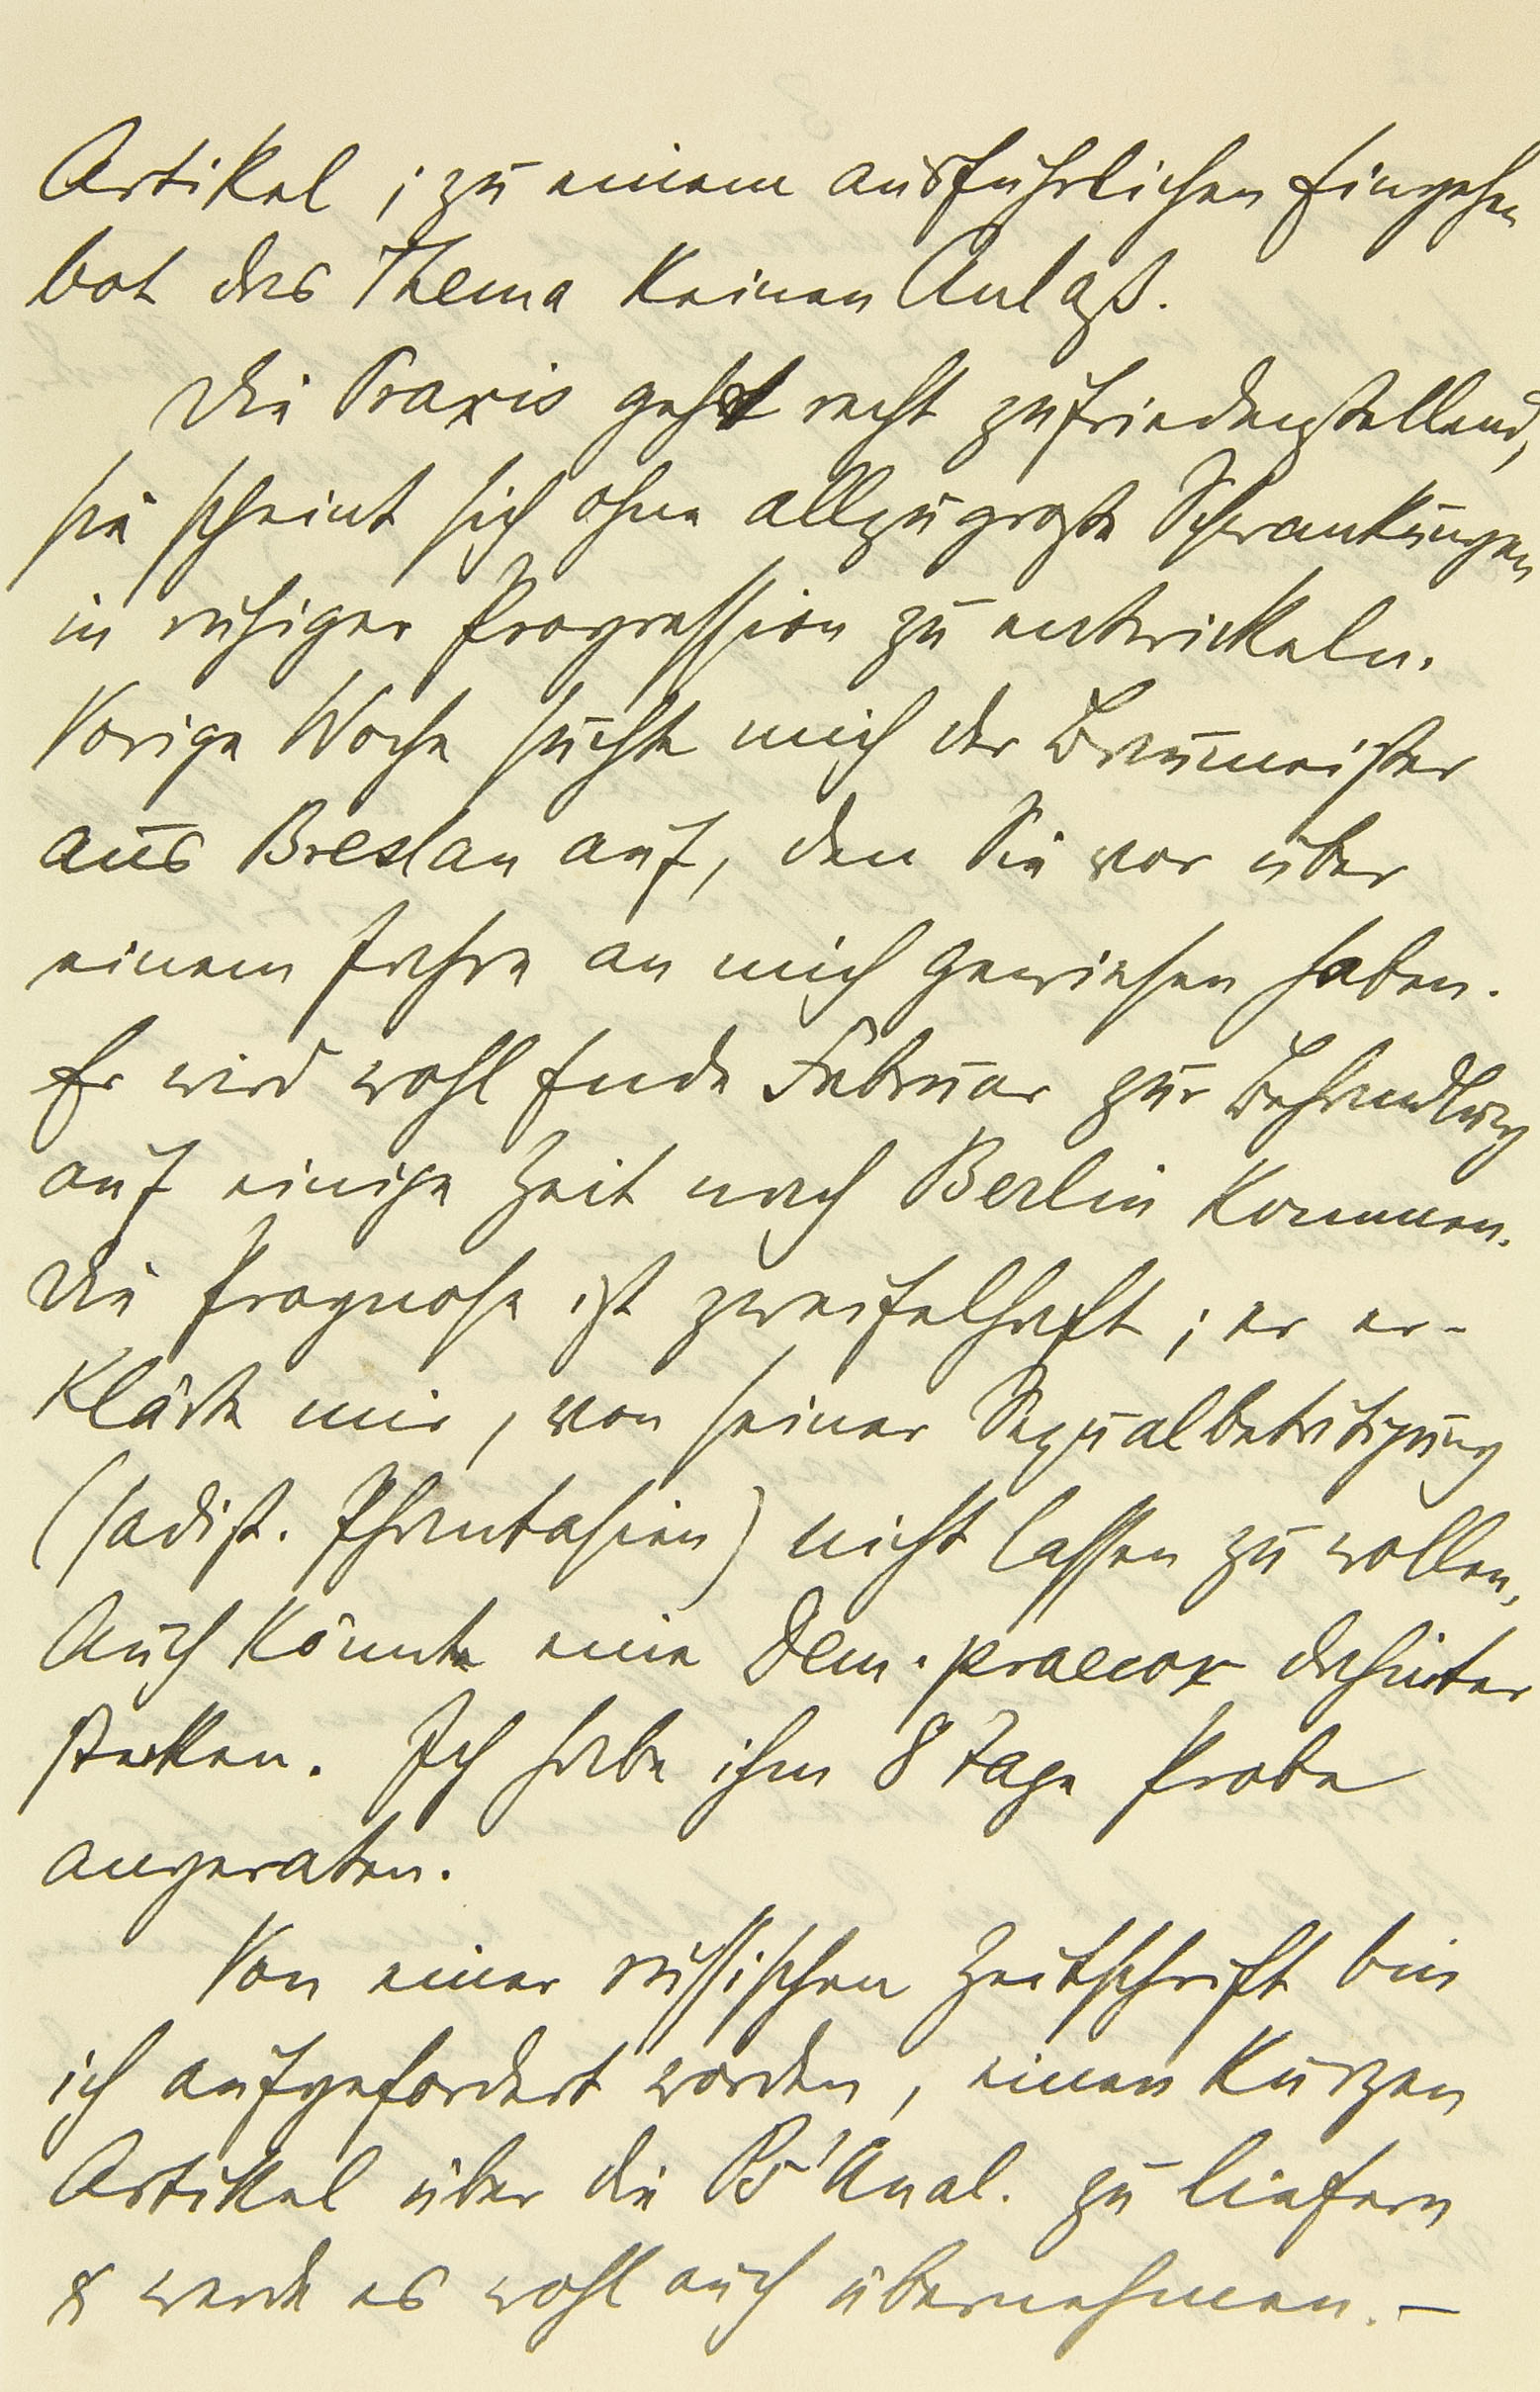 Artikel; zu einem ausführlichen Eingehen
bot das Thema keinen Anlaß.
Die Praxis geht recht zufriedenstellend,
sie scheint sich ohne allzugroße Schwankungen
in ruhiger Progression zu entwickeln.
Vorige Woche suchte mich der Braumeister
aus Breslau auf, den Sie vor über
einem Jahre an mich gewiesen haben.
Er wird wohl Ende Februar zur Behandlung
auf einige Zeit nach Berlin kommen.
Die Prognose ist zweifelhaft; er er-
klärte mir, von seiner Sexualbetätigung
(sadist. Phantasien) nicht lassen zu wollen,
Auch könnte eine Dem. praecox dahinter
stecken. Ich habe ihm 8 Tage Probe
angeraten.
Von einer russischen Zeitschrift bin
ich aufgefordert worden, einen kurzen
Artikel über die Ps'Anal. zu liefern
& werde es wohl auch übernehmen. —